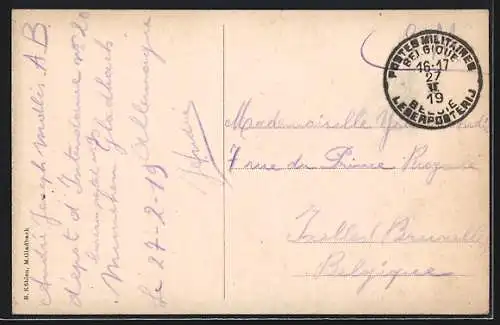 André Joseph A.B.
dépot d'Intendance no 20
München Gladbach
Le 27-2-19 Allemagne
André
B. Kühlen, M. Gladbach.
S.M.
POSTES MILITAIRES
BELGIQUE
16-17
27
II
19
BELGIE
LEGERPOSTERIJ
Mademoiselle
7 rue du Prince Royal
Ixelles Bruxelles
Belgique